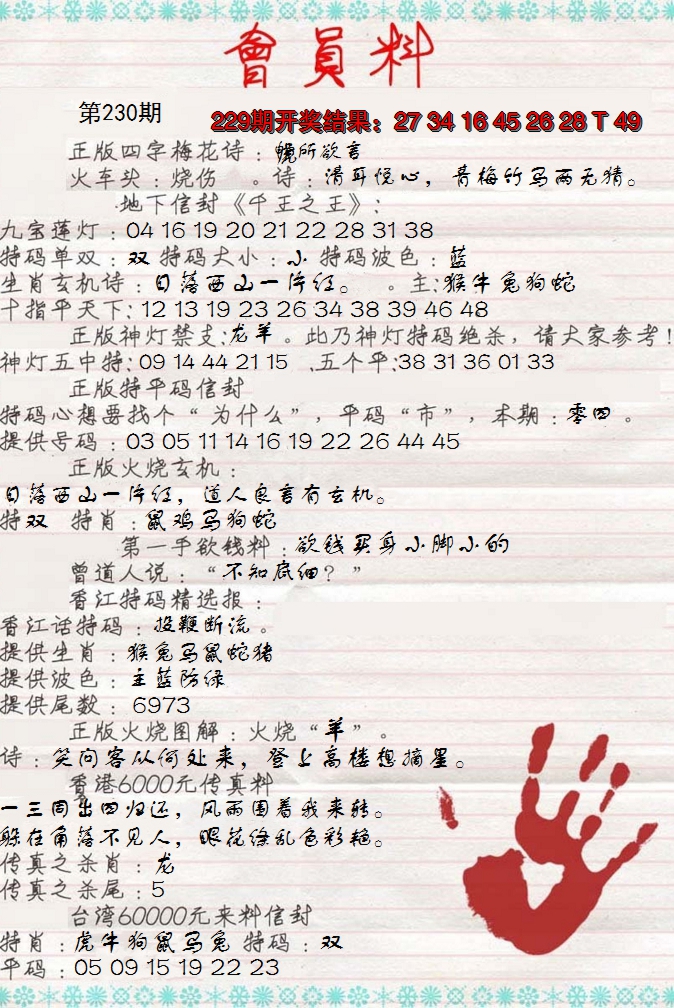 會員料
第230期
229期开奖结果：27 34 16 45 26 28 T 49
正版四字梅花诗：畅所欲言
火车头：烧伤 。诗：滑耳悦心，青梅竹马两无猜。
地下信封《千王之王》：
九宝莲灯：04 16 19 20 21 22 28 31 38
特码单双：双 特码大小：小 特码波色：蓝
生肖玄机诗：日落西山一片红。 。主：猴牛兔狗蛇
十指平天下：12 13 19 23 26 34 38 39 46 48
正版神灯禁支：龙羊。此乃神灯特码绝杀，请大家参考！
神灯五中特：09 14 44 21 15 .五个平：38 31 36 01 33
正版特平码信封
特码心想要找个“为什么”，平码“市”，本期：零四。
提供号码：03 05 11 14 16 19 22 26 44 45
正版火烧玄机：
日落西山一片红，道人良言有玄机。
特双 特肖：鼠鸡马狗蛇
第一手欲钱料：欲钱买身小脚小的
曾道人说：“不知底细？”
香江特码精选报：
香江话特码：投鞭断流。
提供生肖：猴兔马鼠蛇猪
提供波色：主蓝防绿
提供尾数：6973
正版火烧图解：火烧“羊”。
诗：笑问客从何处来，登上高楼想摘星。
香港6000元传真料
一三同出四归还，风雨围着我来转。
躲在角落不见人，眼花缭乱色彩艳。
传真之杀肖：龙
传真之杀尾：5
台湾60000元来料信封
特肖：虎牛狗鼠马兔 特码：双
平码：05 09 15 19 22 23